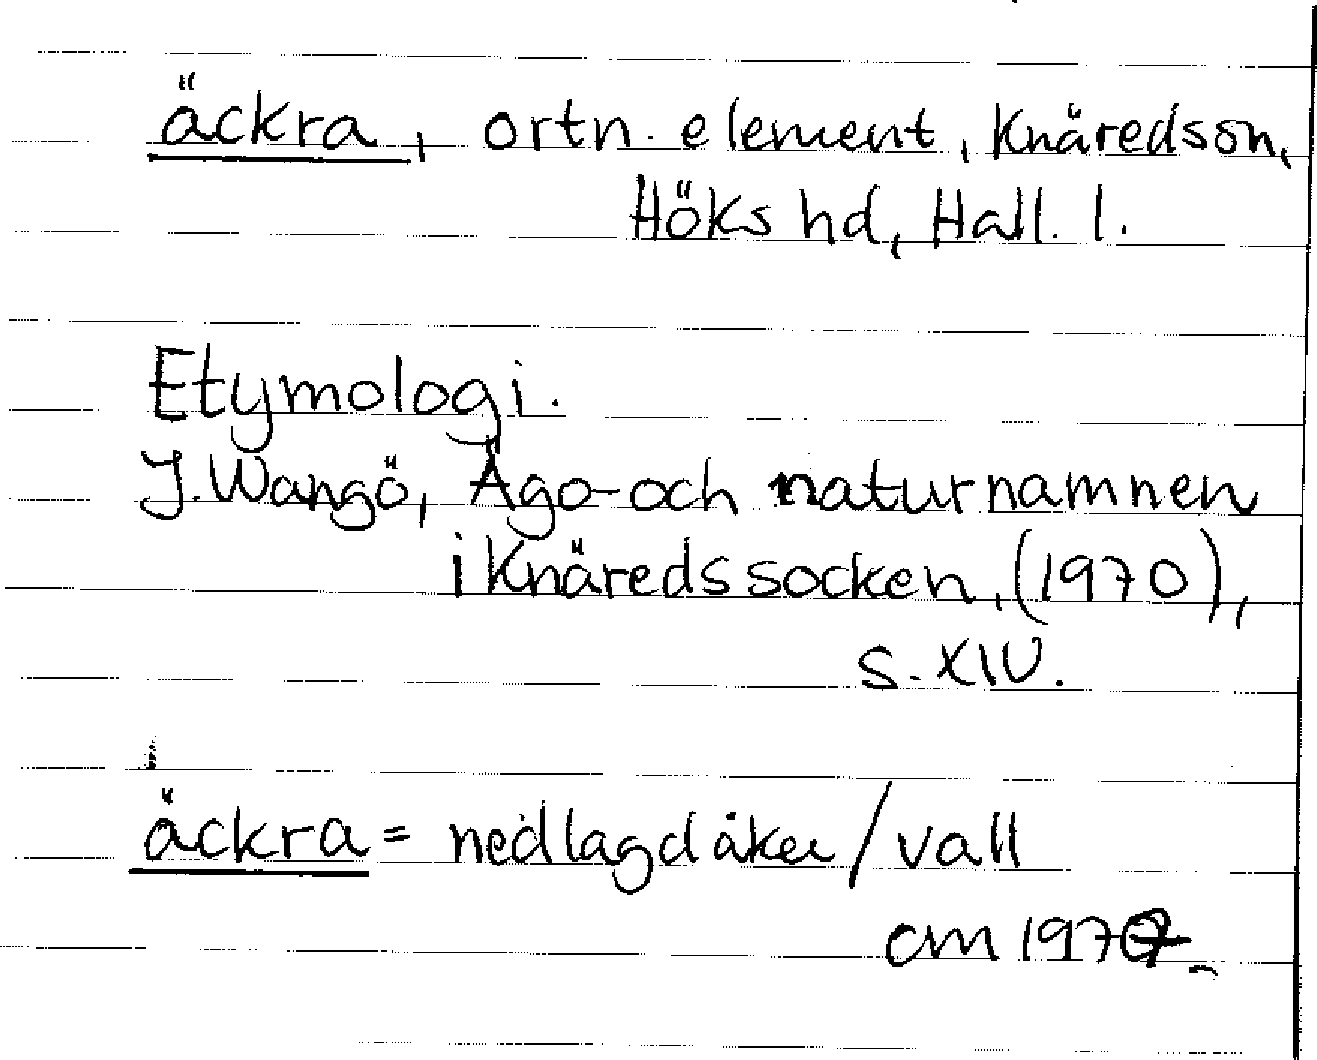 äckra, ortn. element, Knäredsn,
Höks hd, Hall. l.
Etymologi.
J. Wangö, Ägo- och naturnamnen
i Knäreds socken, (1970),
s. XIV.
äckra = nedlagd åker / vall
cm 1977